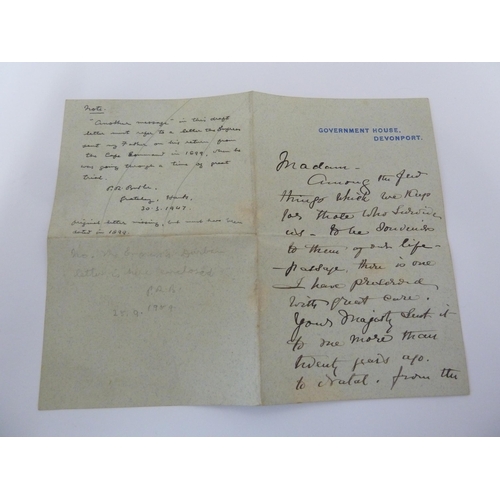 Note.
"Another message" in this draft
letter must refer to a letter the Empress
sent my Father on his return from
the Cape Command in 1899, when he
was going through a time of great
trial.
P.R. Butler.
Hants.
30.3.1947.
Original letter missing, but must have been
in 1899.
letter is enclosed
P.R.B.
GOVERNMENT HOUSE,
DEVONPORT.
Madam –
Among the few
things which we keep
for those who survive
us – to be souvenirs
to them of our life –
passage, there is one
I have preserved
with great care.
Your Majesty sent it
to me more than
twenty years ago.
to Natal. from the